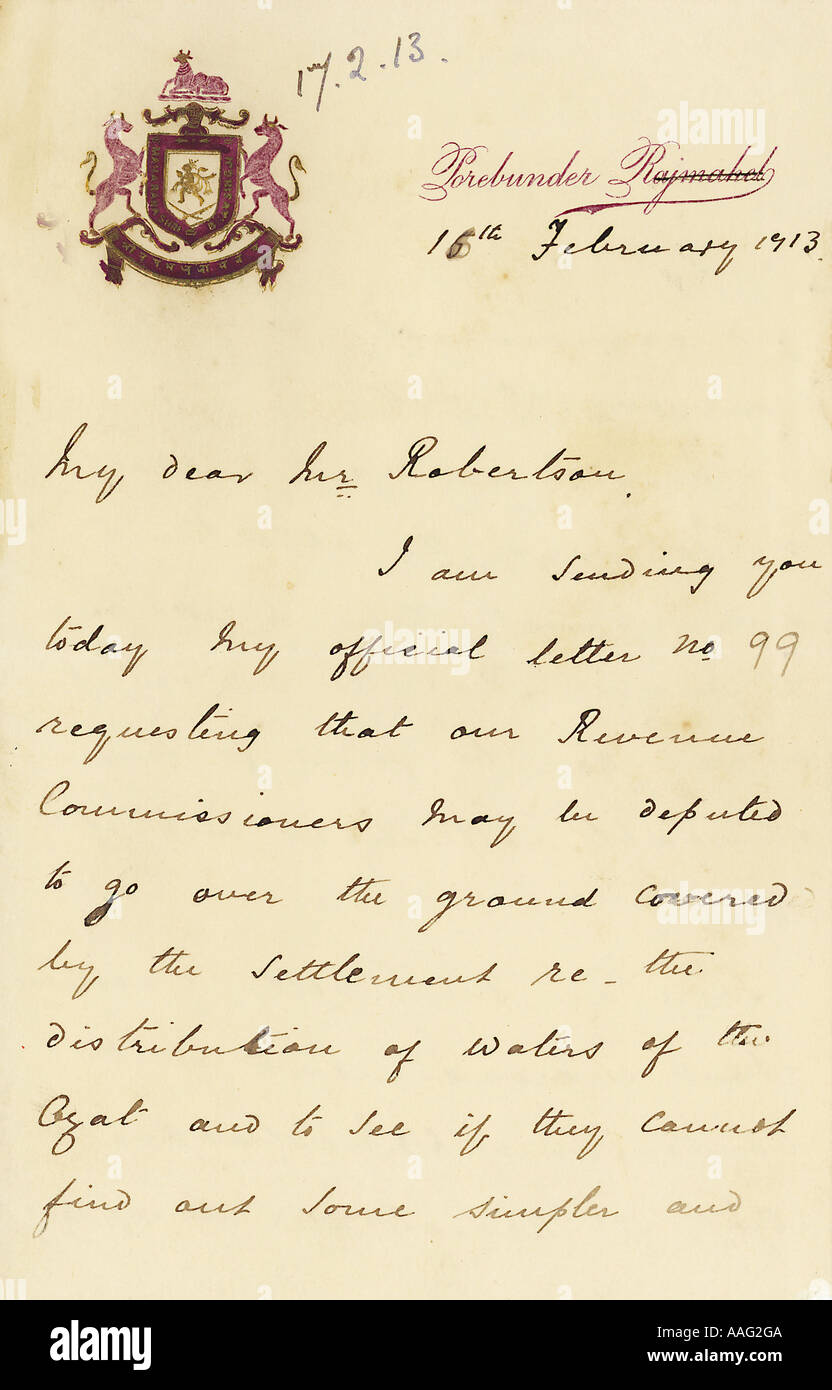 17.2.13.
Porebunder Rajmahal
16th February 1913.
My dear Mr Robertson,
I am sending you
today my official letter no 99
requesting that our Revenue
Commissioners may be deputed
to go over the ground covered
by the settlement re - the
distribution of waters of the
Ozat and to see if they cannot
find out some simpler and
alamy
Image ID: AAG2GA
www.alamy.com